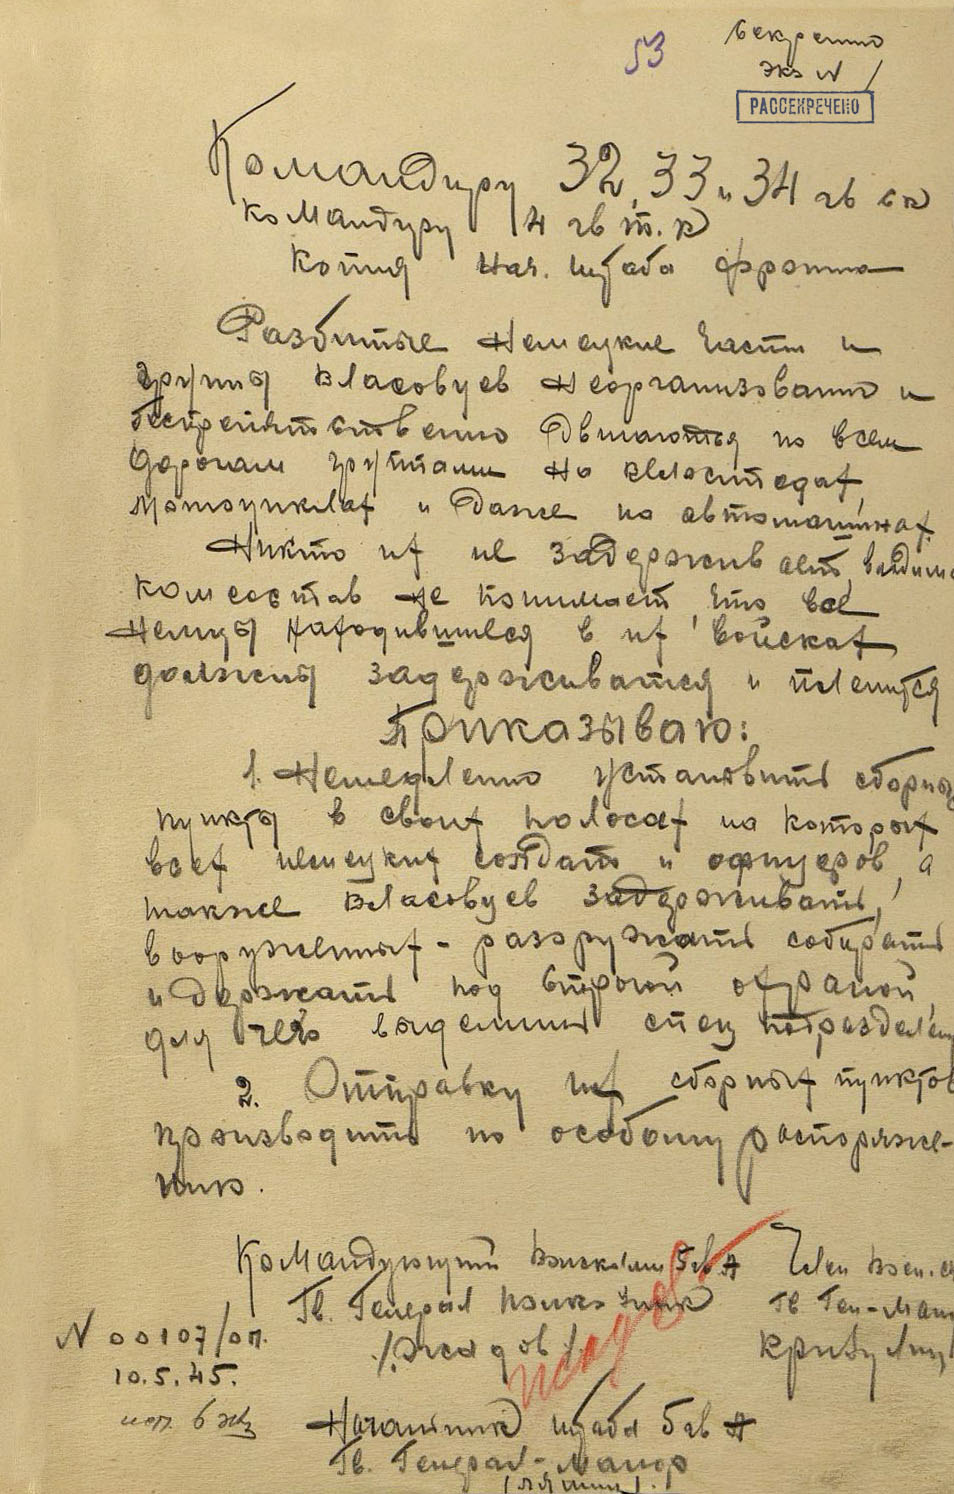 53
Секретно
экз N 1
РАССЕКРЕЧЕНО
Командиру 32, 33 и 34 гв ск
командиру 4 гв т.к
Копия Нач. штаба фронта
Разбитые немецкие части и
группы власовцев неорганизованно и
беспрепятственно двигаются по всем
дорогам группами на велосипедах,
мотоциклах и даже на автомашинах.
Никто их не задерживает, видимо
комсостав не понимает, что все
немцы находившиеся в их войсках
должны задерживатся и пленится
Приказываю:
1. Немедленно установить сборные
пункты в своих полосах на которых
всех немецких солдат и офицеров, а
также власовцев задерживать,
вооруженных - разоружать собирать
и держать под строгой охраной,
для чего выделить спец подразделен
2. Отправку из сборных пунктов
производить по особому распоряже-
нию.
Командующий войсками 5 гв. А Член воен. с
Гв. Генерал полковник Гв. Ген-май
/Жадов/ Кривулин
исх
N 00107/оп.
10.5.45.
исп. 6 экз
Начальник штаба 5 гв А
Гв. Генерал-майор
(Лямин).